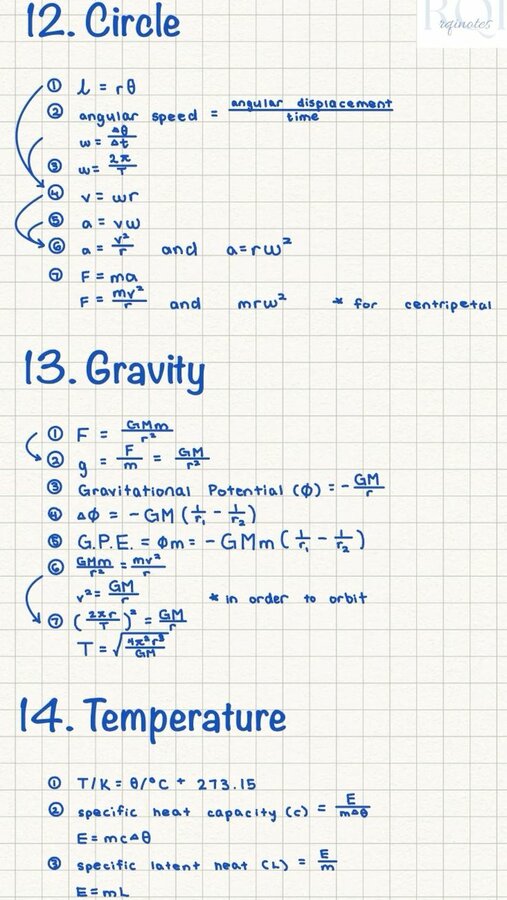 12. Circle
RQI
rqinotes
① l = rθ
② angular speed = angular displacement / time
ω = Δθ / Δt
③ ω = 2π / T
④ v = ωr
⑤ a = vω
⑥ a = v² / r and a = rω²
⑦ F = ma
F = mv² / r and mrω² * for centripetal
13. Gravity
① F = GMm / r²
② g = F / m = GM / r²
③ Gravitational Potential (Φ) = - GM / r
④ ΔΦ = - GM ( 1/r₁ - 1/r₂ )
⑤ G.P.E. = Φm = - GMm ( 1/r₁ - 1/r₂ )
⑥ GMm / r² = mv² / r
v² = GM / r * in order to orbit
⑦ ( 2πr / T )² = GM / r
T = √ 4π²r³ / GM
14. Temperature
① T/K = θ/°C + 273.15
② specific heat capacity (c) = E / mΔθ
E = mcΔθ
③ specific latent heat (L) = E / m
E = mL